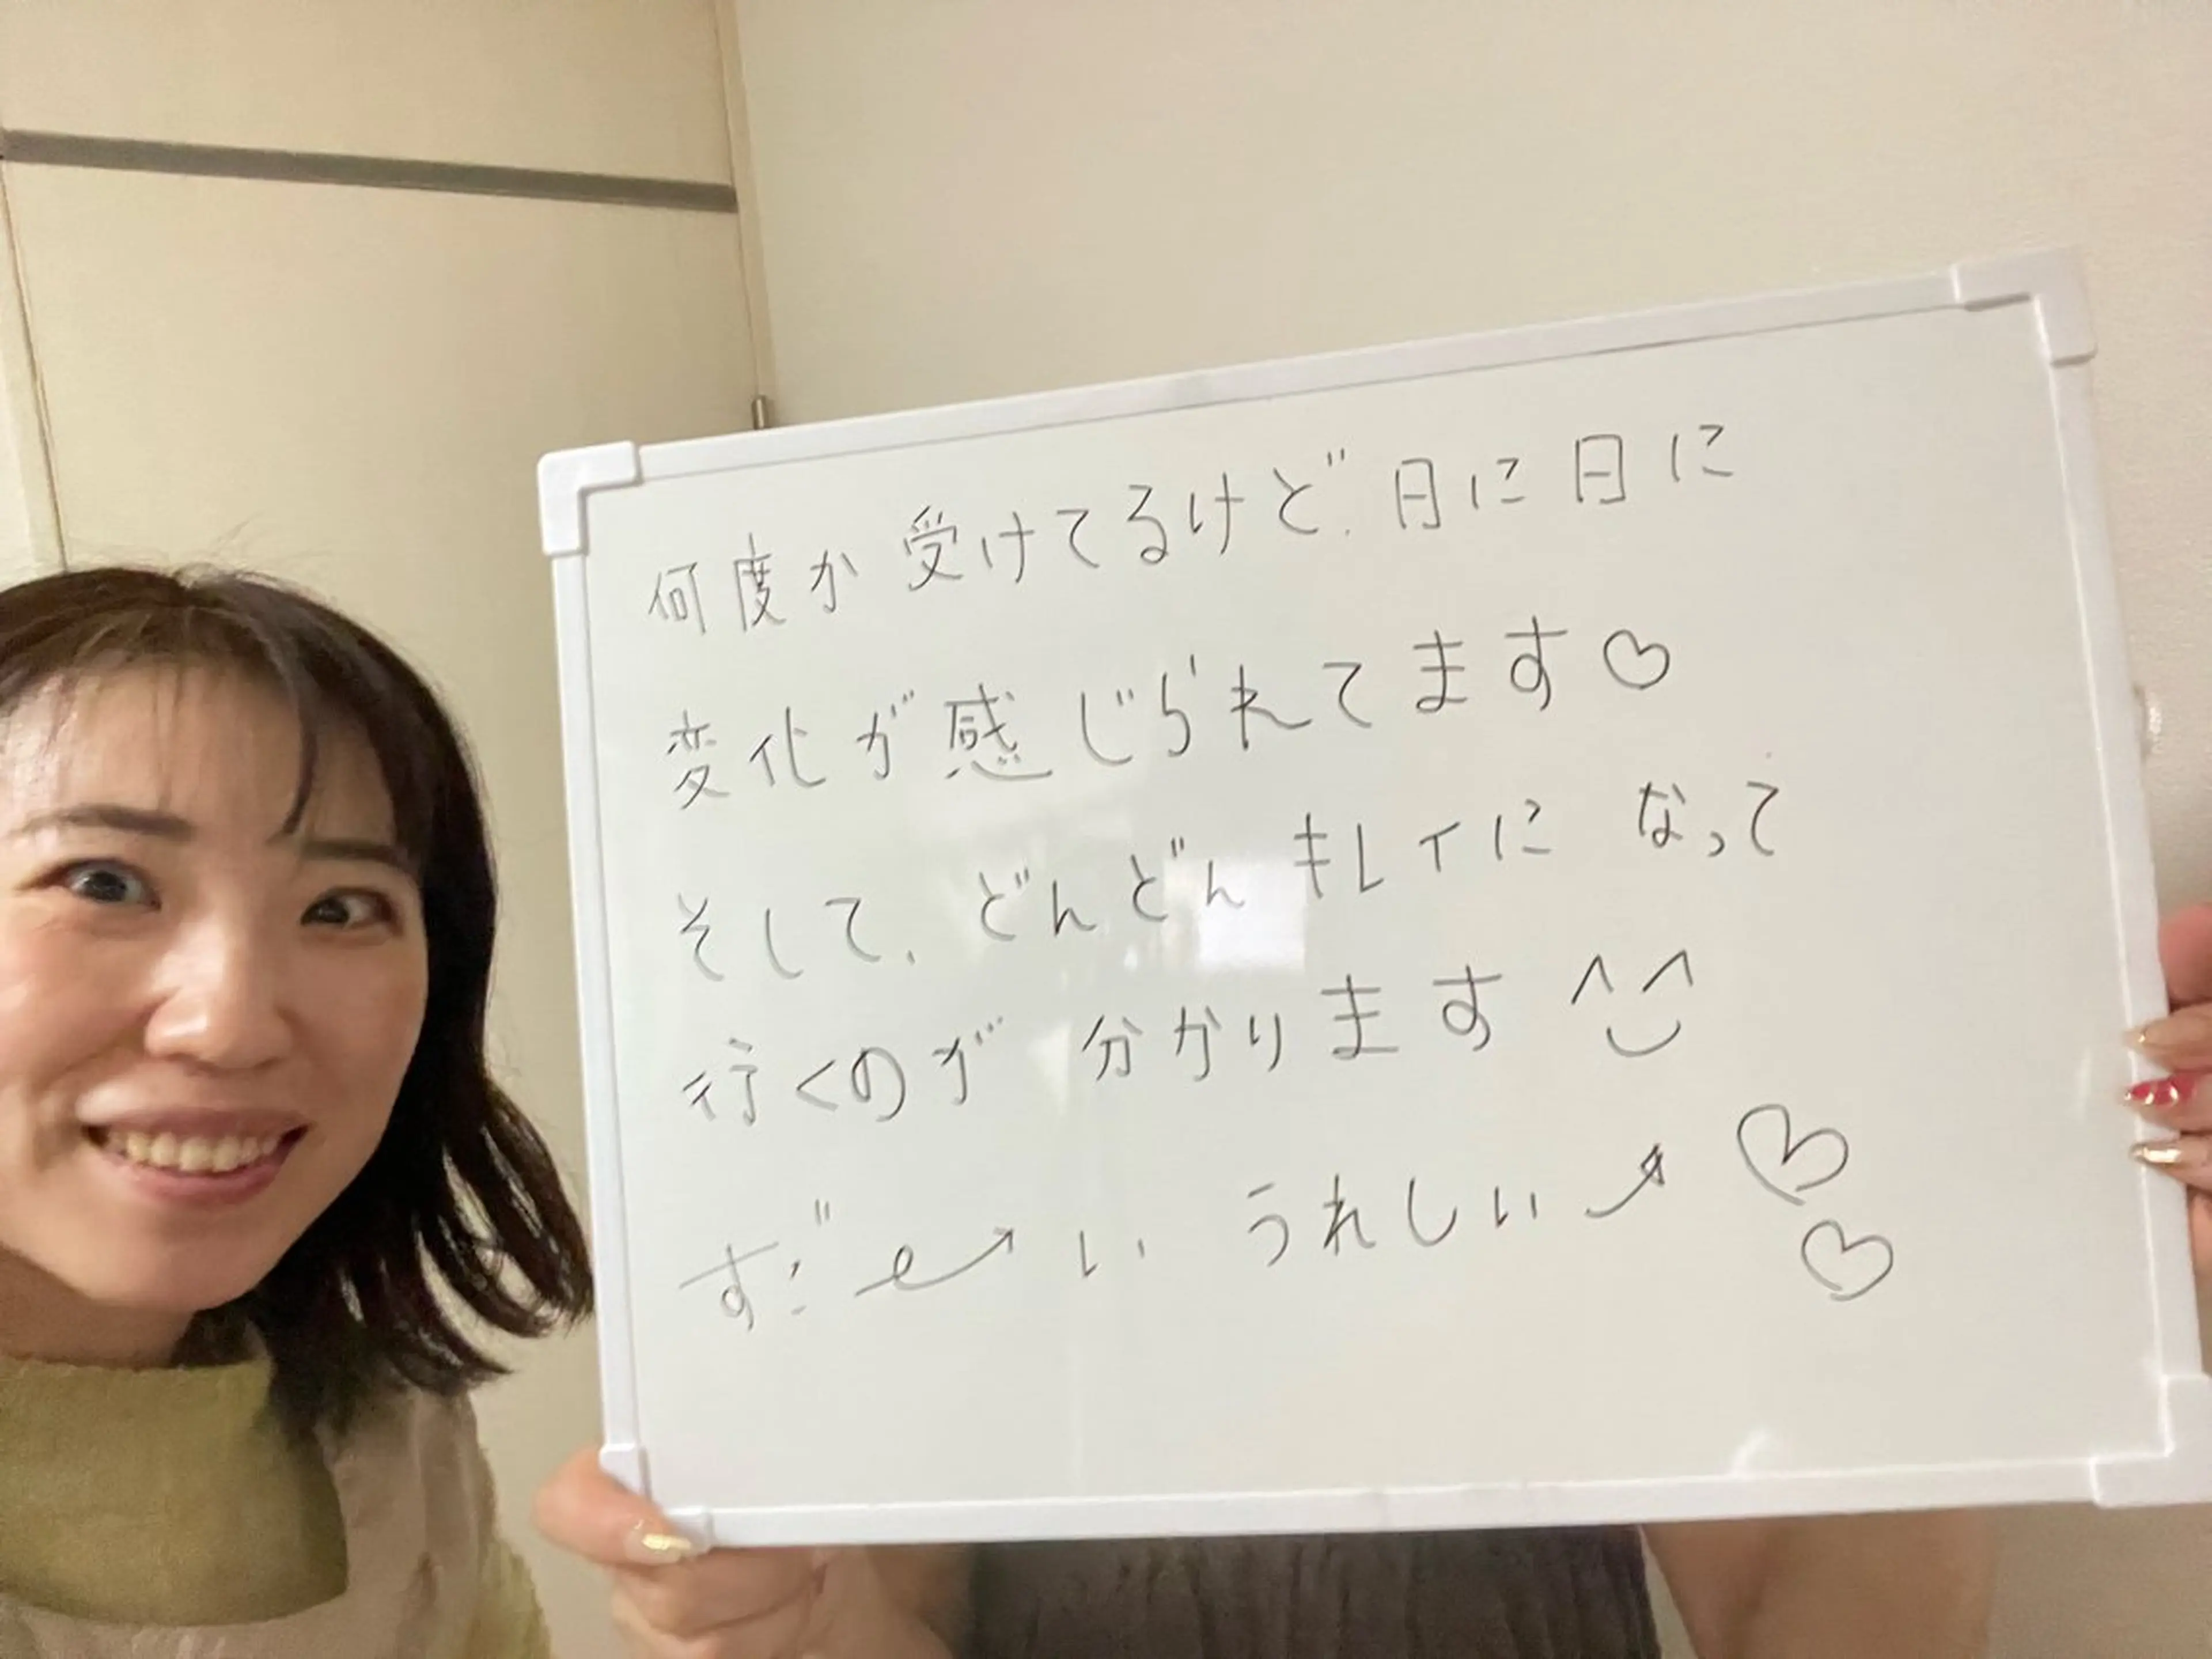 何度か受けてるけど、日に日に
変化が感じられてます♡
そして、どんどんキレイになって
行くのが分かります^^
すご〜い うれしい↗♡♡